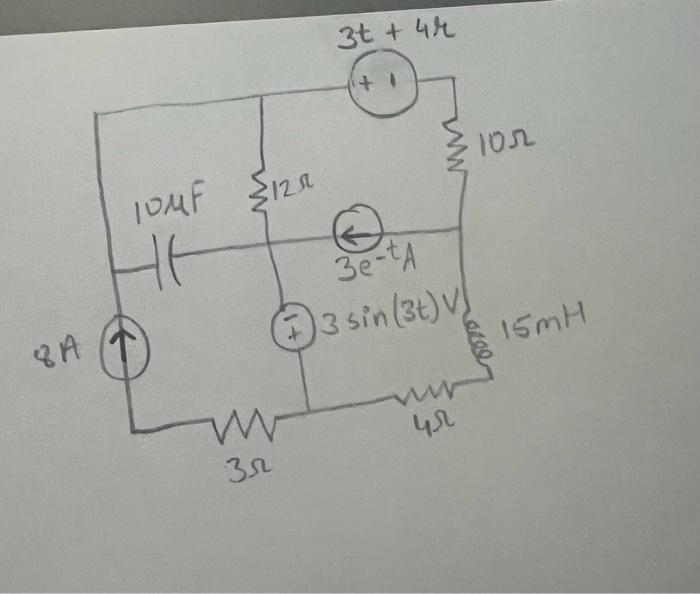 3t + 4r
+ -
10Ω
12Ω
10μF
3e-tA
- +
3 sin(3t) V
15mH
8A
4Ω
3Ω